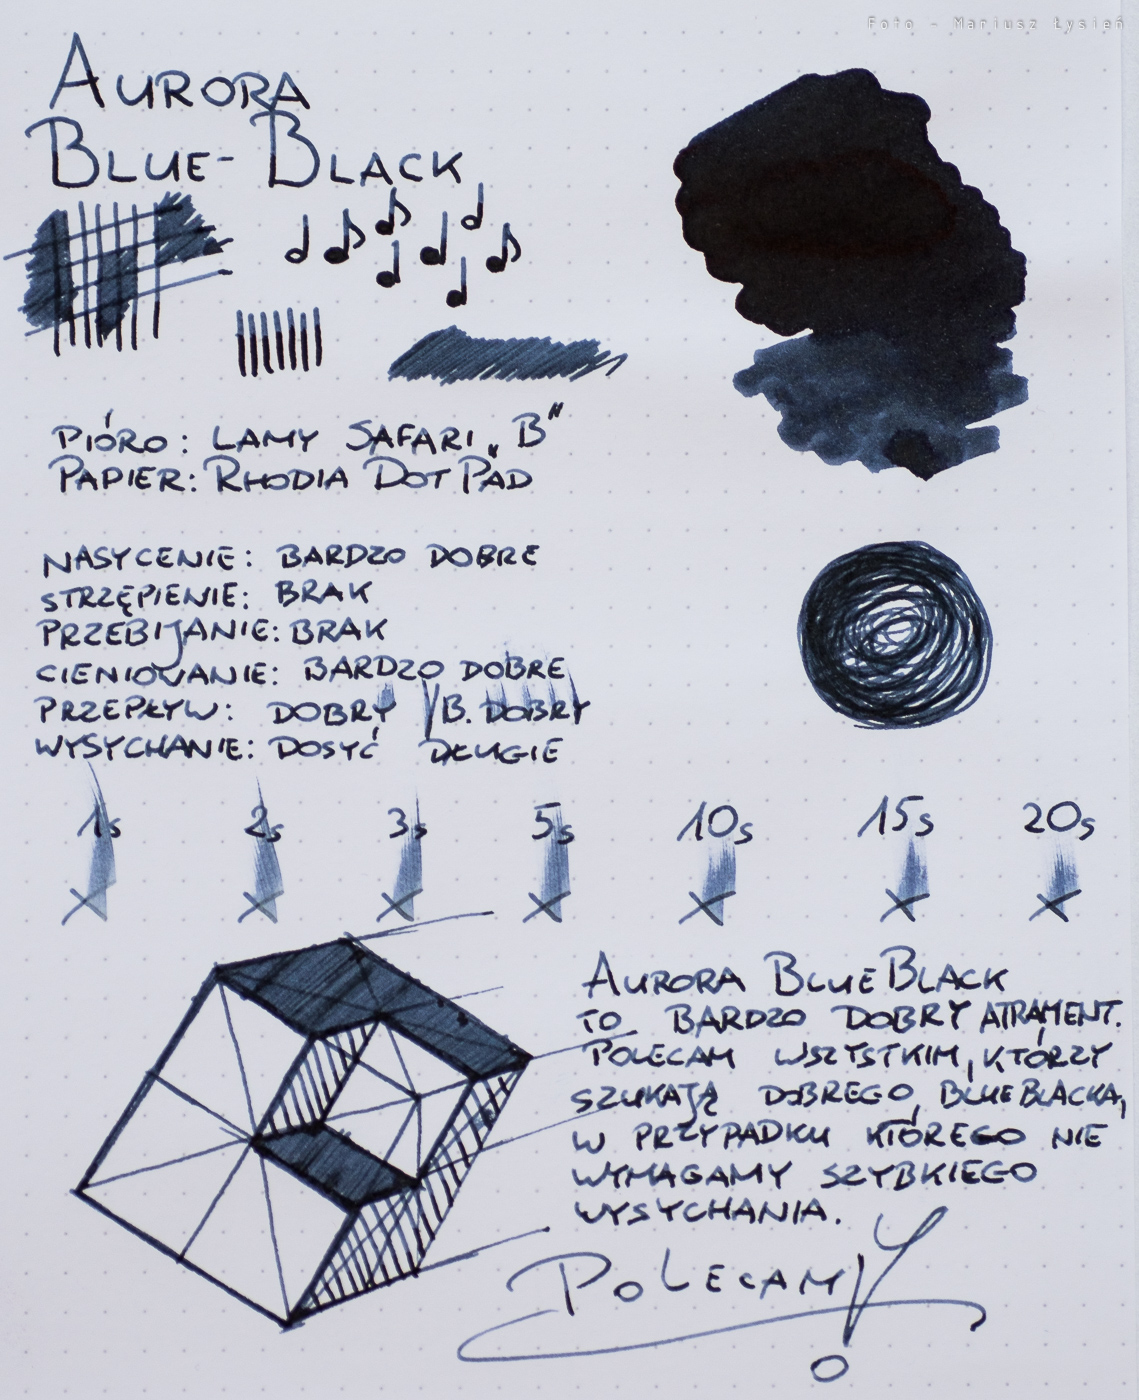 Foto - Mariusz Łysień
AURORA
BLUE-BLACK
PIÓRO: LAMY SAFARI „B"
PAPIER: RHODIA DOT PAD
NASYCENIE: BARDZO DOBRE
STRZĘPIENIE: BRAK
PRZEBIJANIE: BRAK
CIENIOWANIE: BARDZO DOBRE
PRZEPŁYW: DOBRY / B. DOBRY
WYSYCHANIE: DOSYĆ DŁUGIE
1s 2s 3s 5s 10s 15s 20s
AURORA BLUEBLACK
TO BARDZO DOBRY ATRAMENT.
POLECAM WSZYSTKIM, KTÓRZY
SZUKAJĄ DOBREGO, BLUEBLACKA,
W PRZYPADKU KTÓREGO NIE
WYMAGAMY SZYBKIEGO
WYSYCHANIA.
POLECAM!